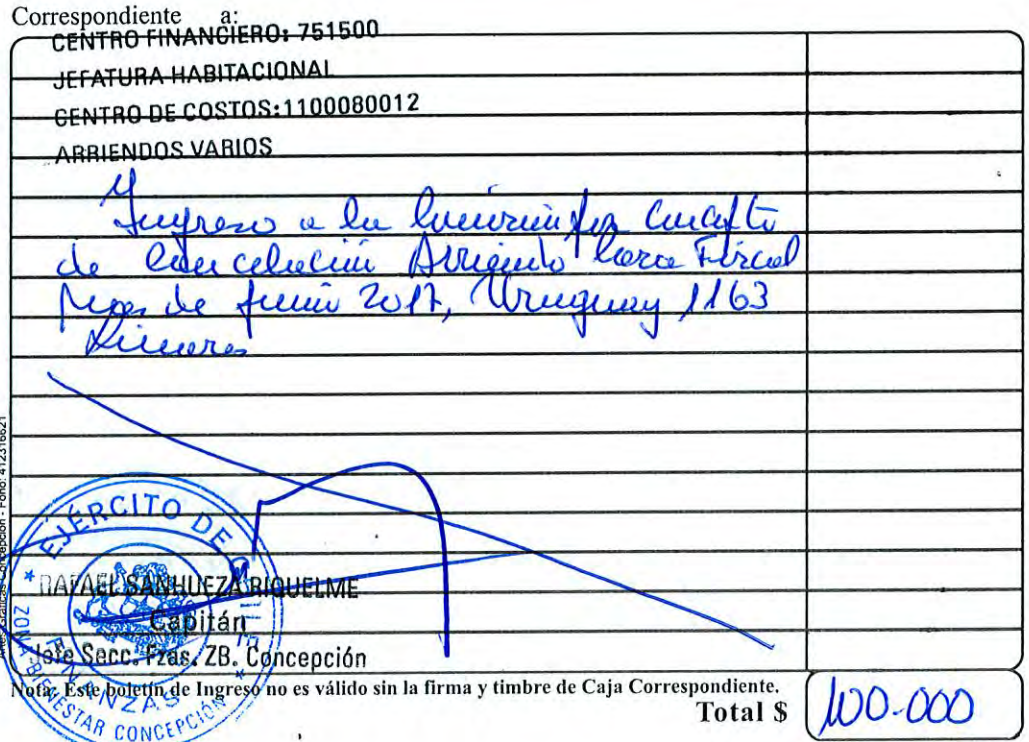 Correspondiente a:
CENTRO FINANCIERO: 751500
JEFATURA HABITACIONAL
CENTRO DE COSTOS:1100080012
ARRIENDOS VARIOS
Ingreso a la
de cancelación Arriendo Casa Fiscal
Mes de Junio 2017, Uruguay 1163
Linares
Artes Gráficas Concepción - Fono: 412316621
EJÉRCITO DE CHILE
FINANZAS
ZONA BIENESTAR CONCEPCIÓN
RAFAEL SANHUEZA RIQUELME
Capitán
Jefe Secc. Fzas. ZB. Concepción
Nota: Este boletín de Ingreso no es válido sin la firma y timbre de Caja Correspondiente.
Total $ 100.000